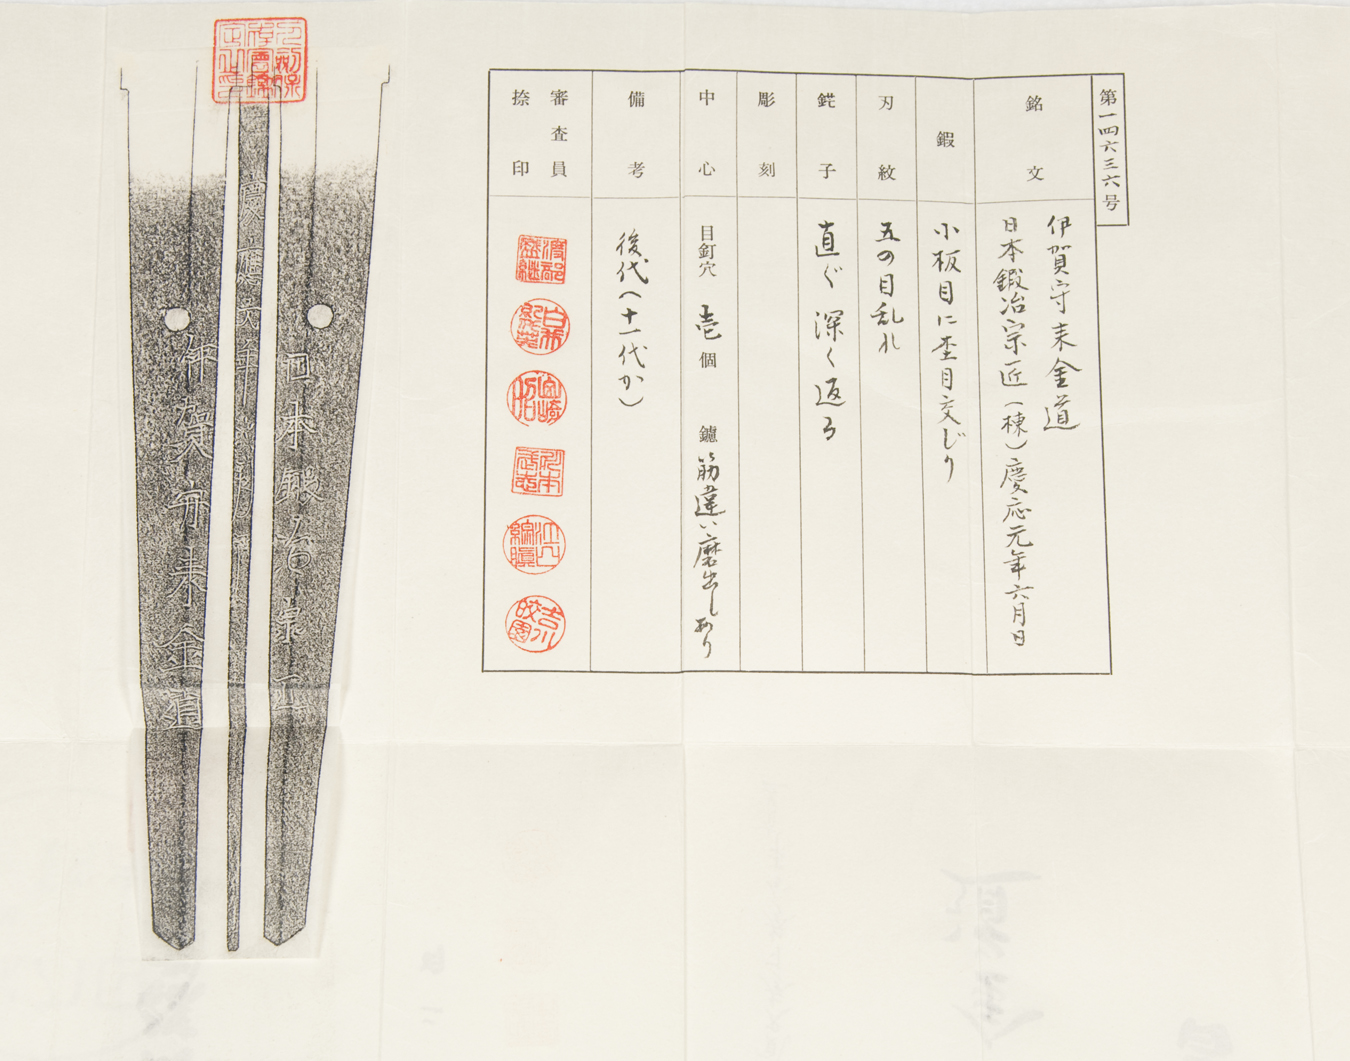 第一四六三六号
銘文
伊賀守来金道
日本鍛冶宗匠（棟）慶応元年六月日
鍛
小板目に杢目交じり
刃紋
五の目乱れ
鋩子
直ぐ深く返る
彫刻
中心
目釘穴 壱個 鑢 筋違い磨出しあり
備考
後代（十一代か）
審査員
捺印
日本鍛冶宗匠
慶應元年六月日
伊賀守来金道